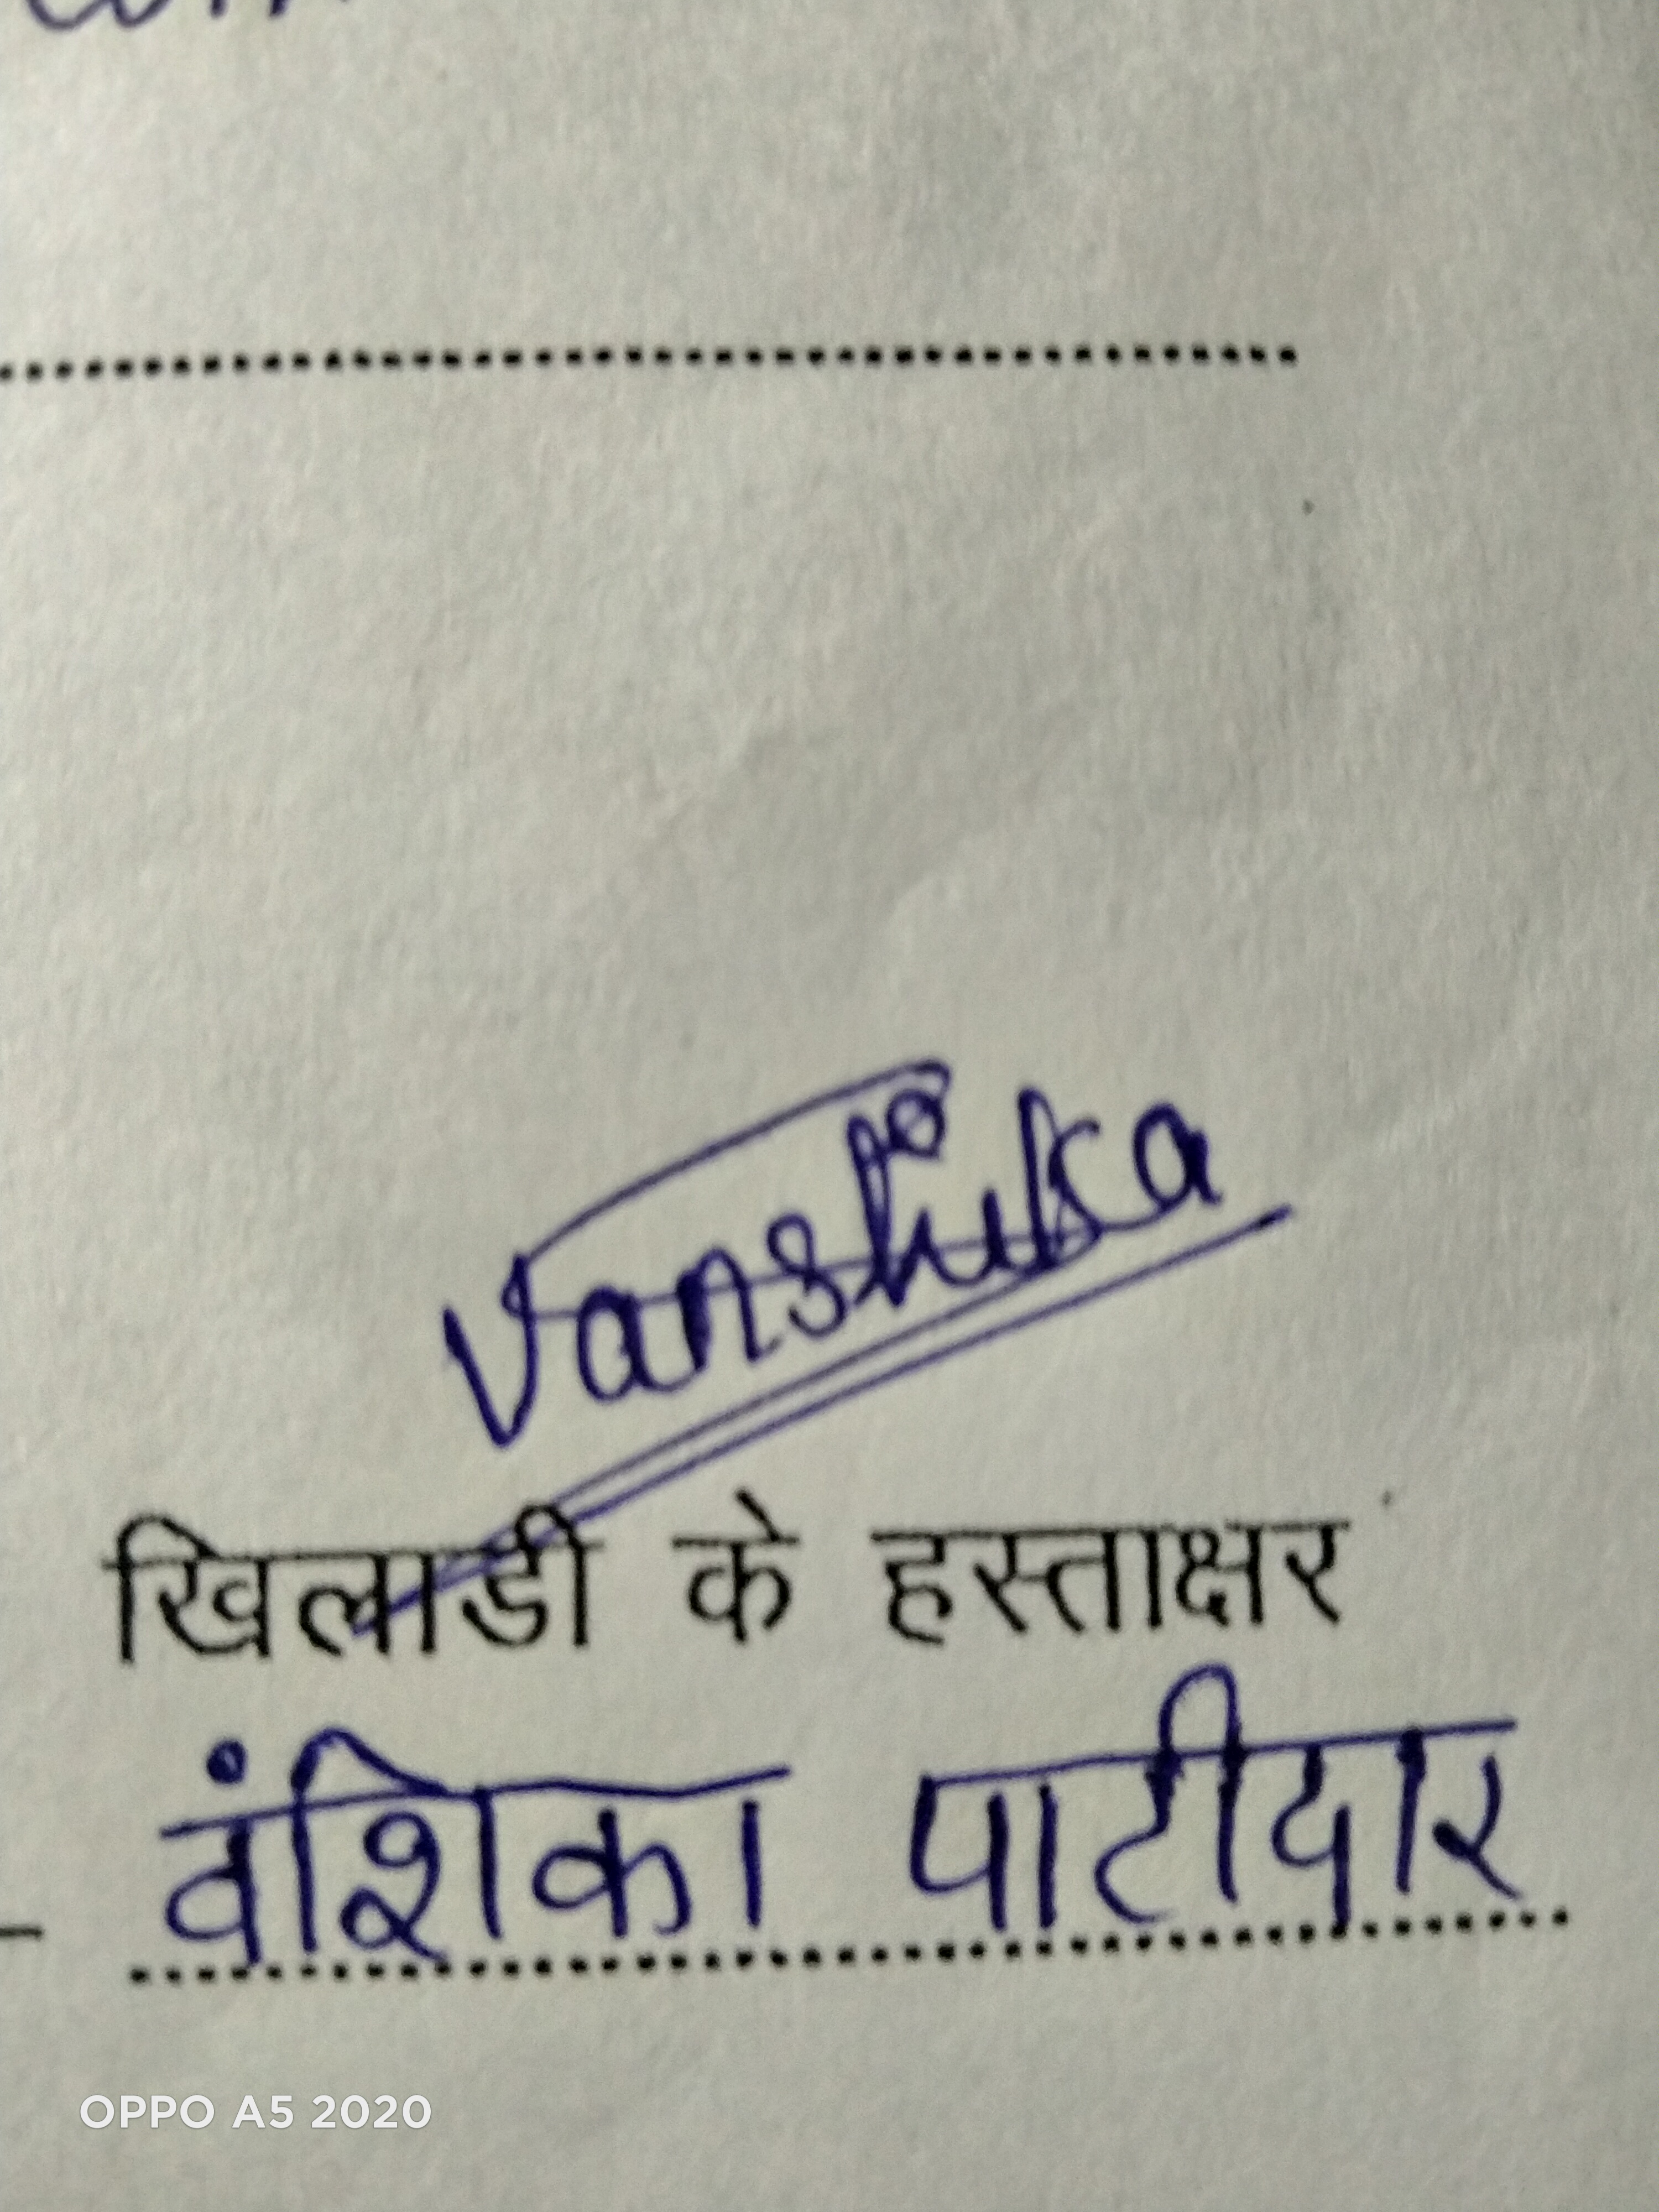 Vanshika
खिलाडी के हस्ताक्षर
वंशिका पाटीदार
OPPO A5 2020